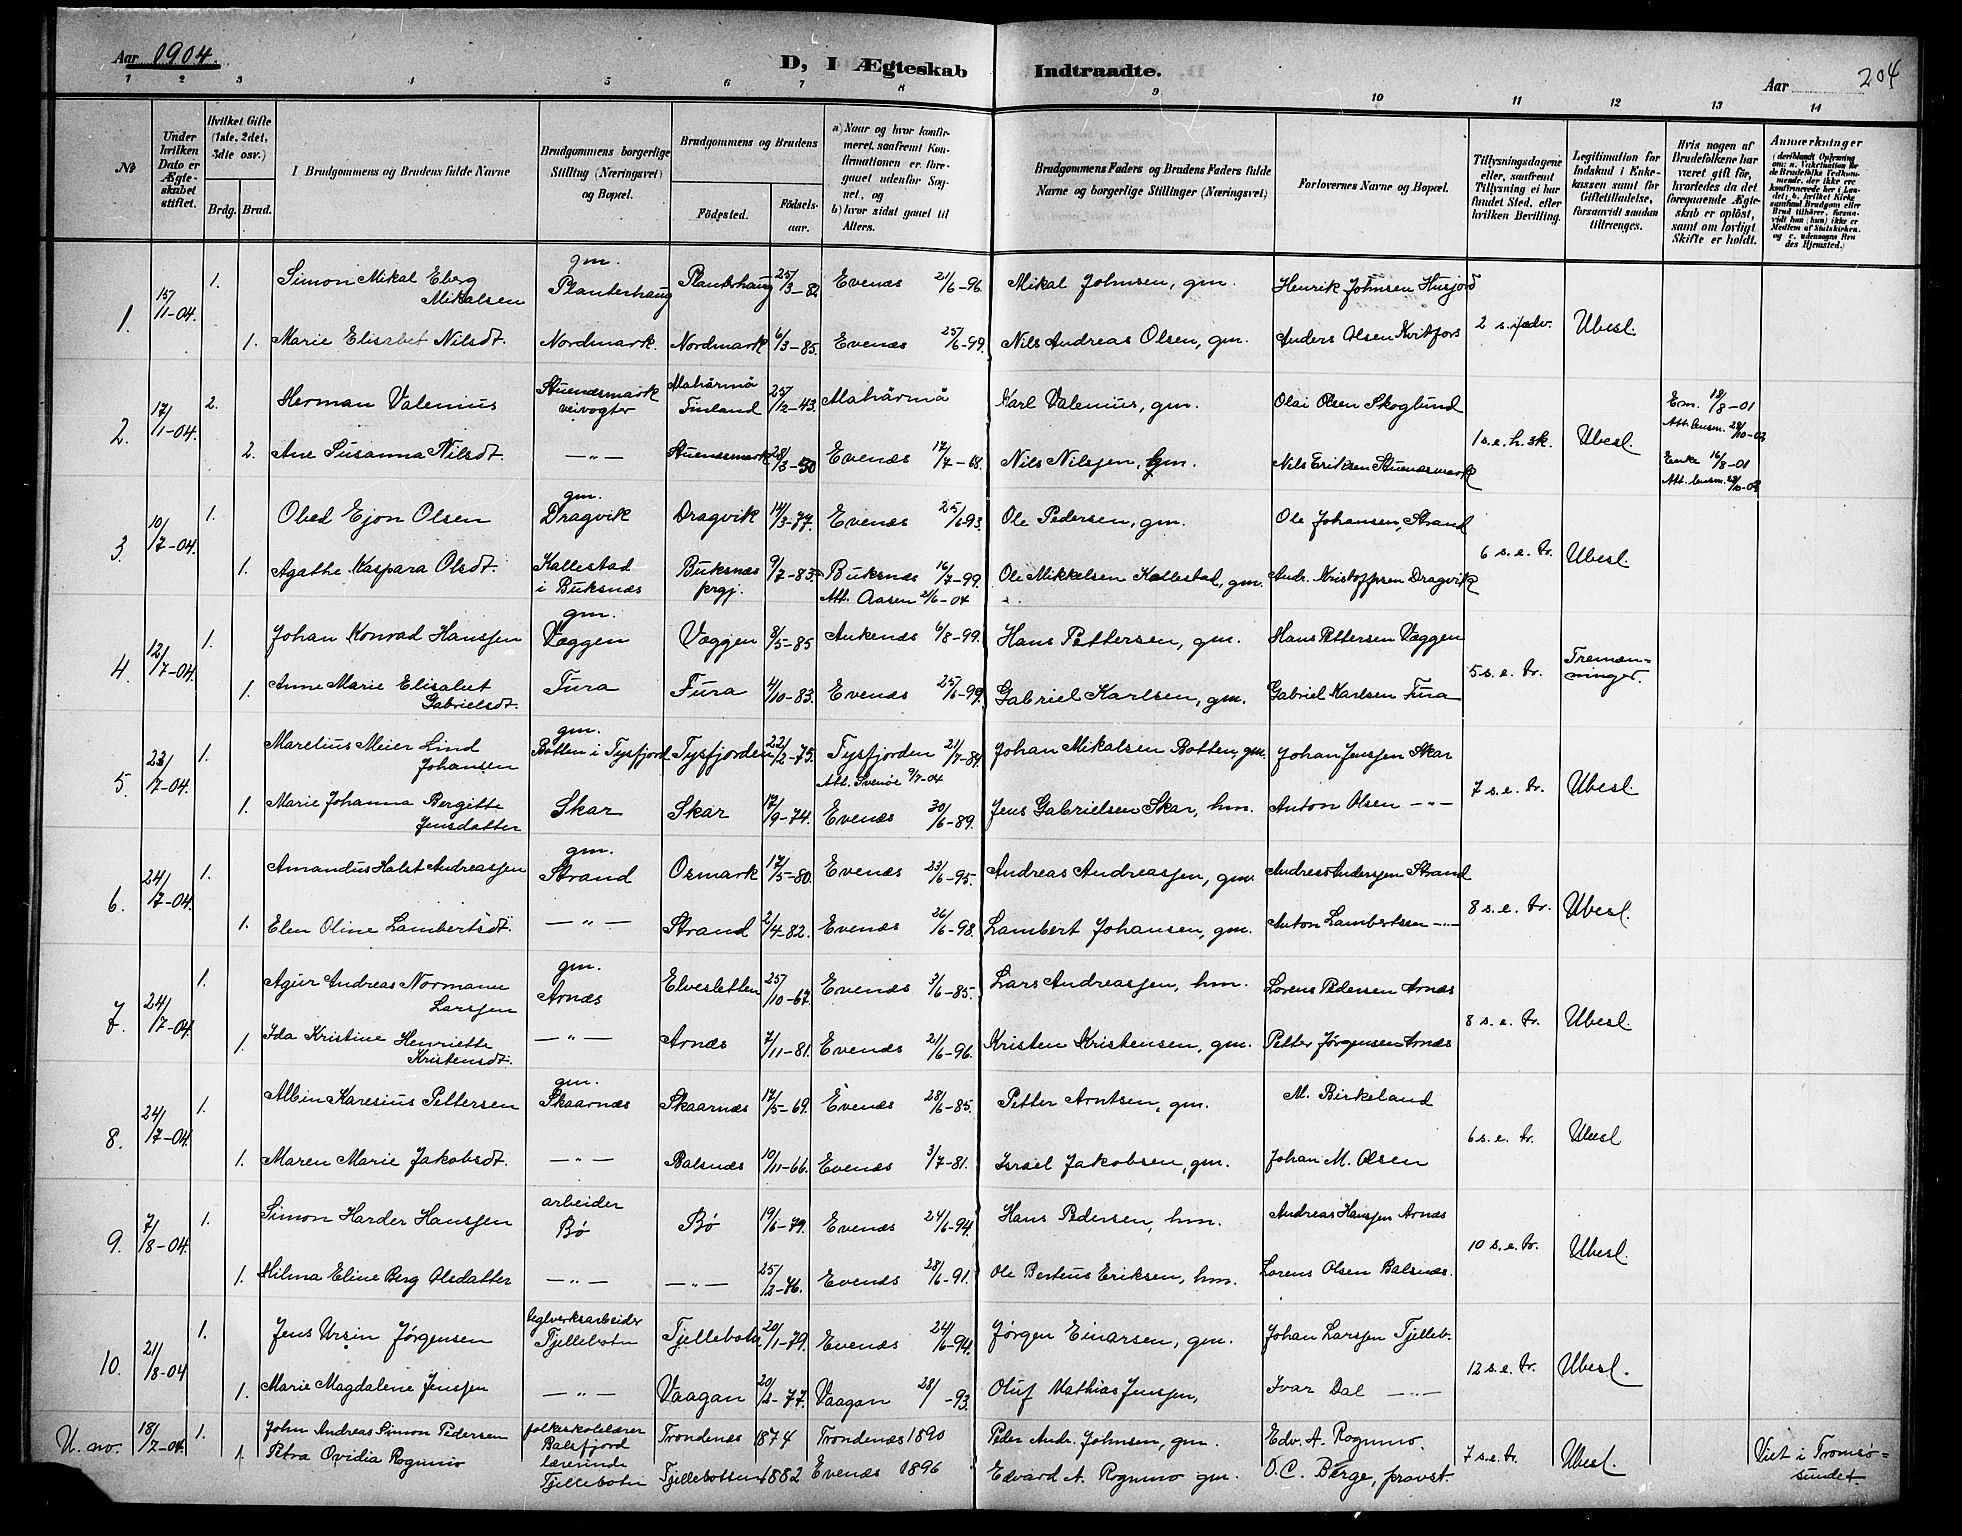 Aar 1904.
D, I Ægteskab Indtraadte.
Aar 204
1 2 3 4 5 6 7 8 9 10 11 12 13 14
No
Under hvilken Dato er Ægteskabet stiftet.
Hvilket Gifte (1ste, 2det, 3die osv.)
Brdg. Brud.
I Brudgommens og Brudens fulde Navne
Brudgommens borgerlige Stilling (Næringsvei) og Bopæl.
Brudgommens og Brudens
Födested. Födselsaar.
a) Naar og hvor konfirmeret, saafremt Konfirmationen er foregaaet udenfor Sognet, og
b) hvor sidst gaaet til Alters.
Brudgommens Faders og Brudens Faders fulde Navne og borgerlige Stillinger (Næringsvei)
Forlovernes Navne og Bopæl.
Tillysningsdagene eller, saafremt Tillysning ei har fundet Sted, efter hvilken Bevilling.
Legitimation for Indskud i Enkekassen samt for Giftetilladelse, forsaavidt saadan tiltrænges.
Hvis nogen af Brudefolkene har været gift för, hvorledes da det foregaaende Ægteskab er oplöst, samt om lovligt Skifte er holdt.
Anmærkninger
1. 15/1-04. 1. Simon Mikal Eberg Mikalsen gm. Planterhaug Planterhaug 25/3-82 Evenæs 21/6-96. Mikal Johnsen, gm. Henrik Johnsen Husjord 2 s. i adv. Ubesl.
1. Marie Elisabet Nilsdt. Nordmark. Nordmark 6/3-85. Evenæs 25/6-99. Nils Andreas Olsen, gm. Anders Olsen Kvitfors
2. 17/1-04. 2. Herman Valenius Stuenesmark veivogter Mahärmä Finland 25/12-43. Mahärmä Karl Valenius, gm. Olai Olsen Skoglund 1 s. e. h. 3k. Ubesl. Em. 18/8-01
2. Ane Susanna Nilsdt. —"— Stuenesmark 28/3-50 Evenæs 17/7-68. Nils Nilsjen, gm. Nils Eriksen Stuenesmark Enke 16/8-01
3. 10/7-04. 1. Obed Ejon Olsen gm. Dragvik Dragvik 14/3-77. Evenæs 25/6-93. Ole Pedersen, gm. Ole Johansen, Strand 6 s. e. tr. Ubesl.
1. Agathe Kaspara Olsdt. Kallestad i Buksnæs Buksnæs prgj. 9/7-83. Buksnæs 16/7-99. Att. Aasen 2/6-04 Ole Mikkelsen Kallestad, gm. Andr. Kristoffersen Dragvik
4. 12/7-04. 1. Johan Konrad Hansjen gm. Væggen Væggen 8/5-85 Ankenæs 6/8-99. Hans Pettersen, gm. Hans Pettersen Væggen 5 s. e. tr. Tremænninger.
1. Anne Marie Elisabet Gabrielsdt. Fura Fura 4/10-83. Evenæs 25/6-99. Gabriel Karlsen, gm. Gabriel Karlsen Fura
5. 23/7-04. 1. Marelius Meier Lind Johansen gm. Botten i Tysfjord Tysfjorden 22/2-75. Tysfjorden 21/7-89. Att. Svenöe 9/7-04 Johan Mikalsen Botten, gm. Johan Jensjen Skar 7 s. e. tr. Ubesl.
1. Marie Johanna Bergitte Jensdatter Skar Skar 17/9-74. Evenæs 30/6-89. Jens Gabrielsen Skar, hm. Anton Olsen —"—
6. 24/7-04. 1. Amandus Halst Andreasjen gm. Strand Osmark 17/5-80. Evenæs 23/6-95. Andreas Andreasjen, gm. Andreas Andersjen Strand 8 s. e. tr. Ubesl.
1. Elen Oline Lambertsdt. —"— Strand 2/4-82. Evenæs 26/6-98. Lambert Johansen, gm. Anton Lambertsen —"—
7. 24/7-04. 1. Agur Andreas Normann Larsjen gm. Arnæs Elvesletten 25/10-67. Evenæs 3/6-85. Lars Andreasjen, hm. Lorens Pedersen Arnæs 8 s. e. tr. Ubesl.
1. Ida Kristine Henriette Kristensdt. —"— Arnæs 7/11-81. Evenæs 21/6-96. Kristen Kristensen, gm. Petter Jørgensen Arnæs
8. 24/7-04. 1. Albin Karesius Pettersen gm. Skaarnæs Skaarnæs 17/5-69. Evenæs 28/6-85. Petter Arntsen, gm. M. Birkeland 6 s. e. tr. Ubesl
1. Maren Marie Jakobsdt. —"— Balsnæs 10/11-66. Evenæs 3/7-81. Israel Jakobsen, gm. Johan M. Olsen
9. 7/8-04. 1. Simon Harder Hansjen arbeider Bø Bø 19/6-79. Evenæs 24/6-94. Hans Pedersen, hm. Andreas Hansjen Arnæs 10 s. e. tr. Ubesl.
1. Hilma Eline Berg Olsdatter —"— —"— 25/2-76. Evenæs 28/6-91. Ole Berteus Eriksen, hm. Lorens Olsen Balsnæs.
10. 21/8-04 1. Jens Ursin Jørgensen teglverksarbeider Tjellebotn Tjellebotn 20/1-79. Evenæs 24/6-94. Jørgen Einarsen, gm. Johan Larsjen Tjelleb. 12 s. e. tr. Ubesl.
1. Marie Magdalene Jensjen —"— Vaagan 20/2-77. Vaagan 28/ -93. Oluf Mathias Jensjen, Ivar Dal —"—
U. no. 18/7-04. 1. John Andreas Simon Pedersen folkeskolelærer Balsfjord Trondenæs 1874 Trondenæs 1890 Peder Andr. Johnsen, gm. Edv. A. Rognmo. 7 s. e. tr Ubesl. Viet i Tromsøsundet.
1. Petra Ovidia Rognmo lærerinde Tjellebotn Tjellebotten 1882 Evenæs 1896 Edvard A. Rognmo gm. O. C. Berge, provst.